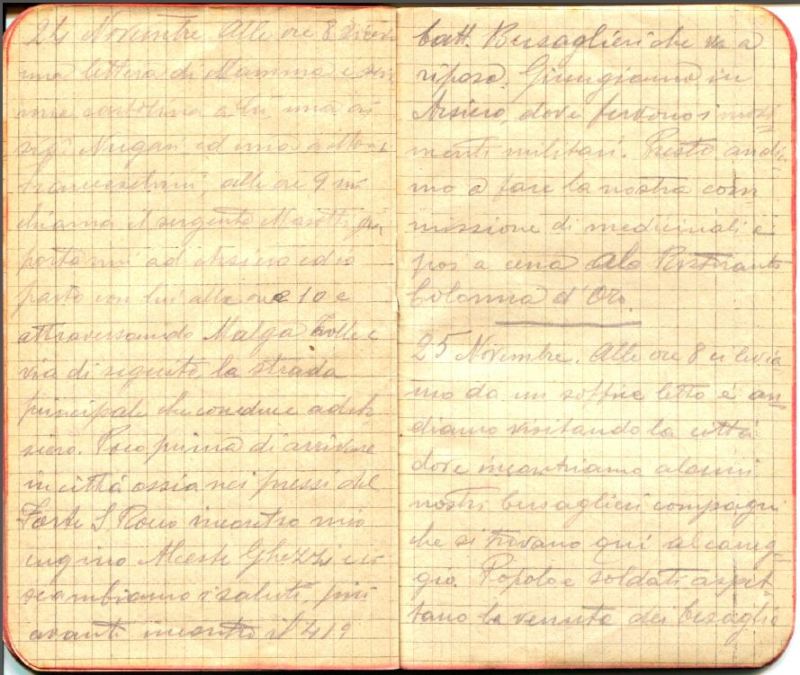 24 Novembre. Alle ore 8 ricevo
una lettera di Mamma e scri
una cartolina a lui, una a
Nugari ed una a
Franceschini, alle ore 9 mi
chiama il sergente Masotti per
portarmi ad Arsiero ed io
parto con lui alle ore 10 e
attraversando Malga Zolle e
via di seguito la strada
principale che conduce ad Ar
siero. Poco prima di arrivare
in città ossia nei pressi del
Forte S. Rocco incontro mio
cugino Alceste Ghezzi e ci
scambiamo i saluti, più
avanti incontro il 4/9
batt. Bersaglieri che va a
riposo. Giungiamo in
Arsiero, dove fervono i movi
menti militari. Presto andia
mo a fare la nostra com
missione di medicinali e
poi a cena alo Ristorante
Colonna d'Oro.
25 Novembre. Alle ore 8 ci levia
mo da un soffice letto e an
diamo visitando la città
dove incontriamo alcuni
nostri bersaglieri compagni
che si trovano qui al careg
gio. Popolo e soldati aspet
tano la venuta dei bersaglie